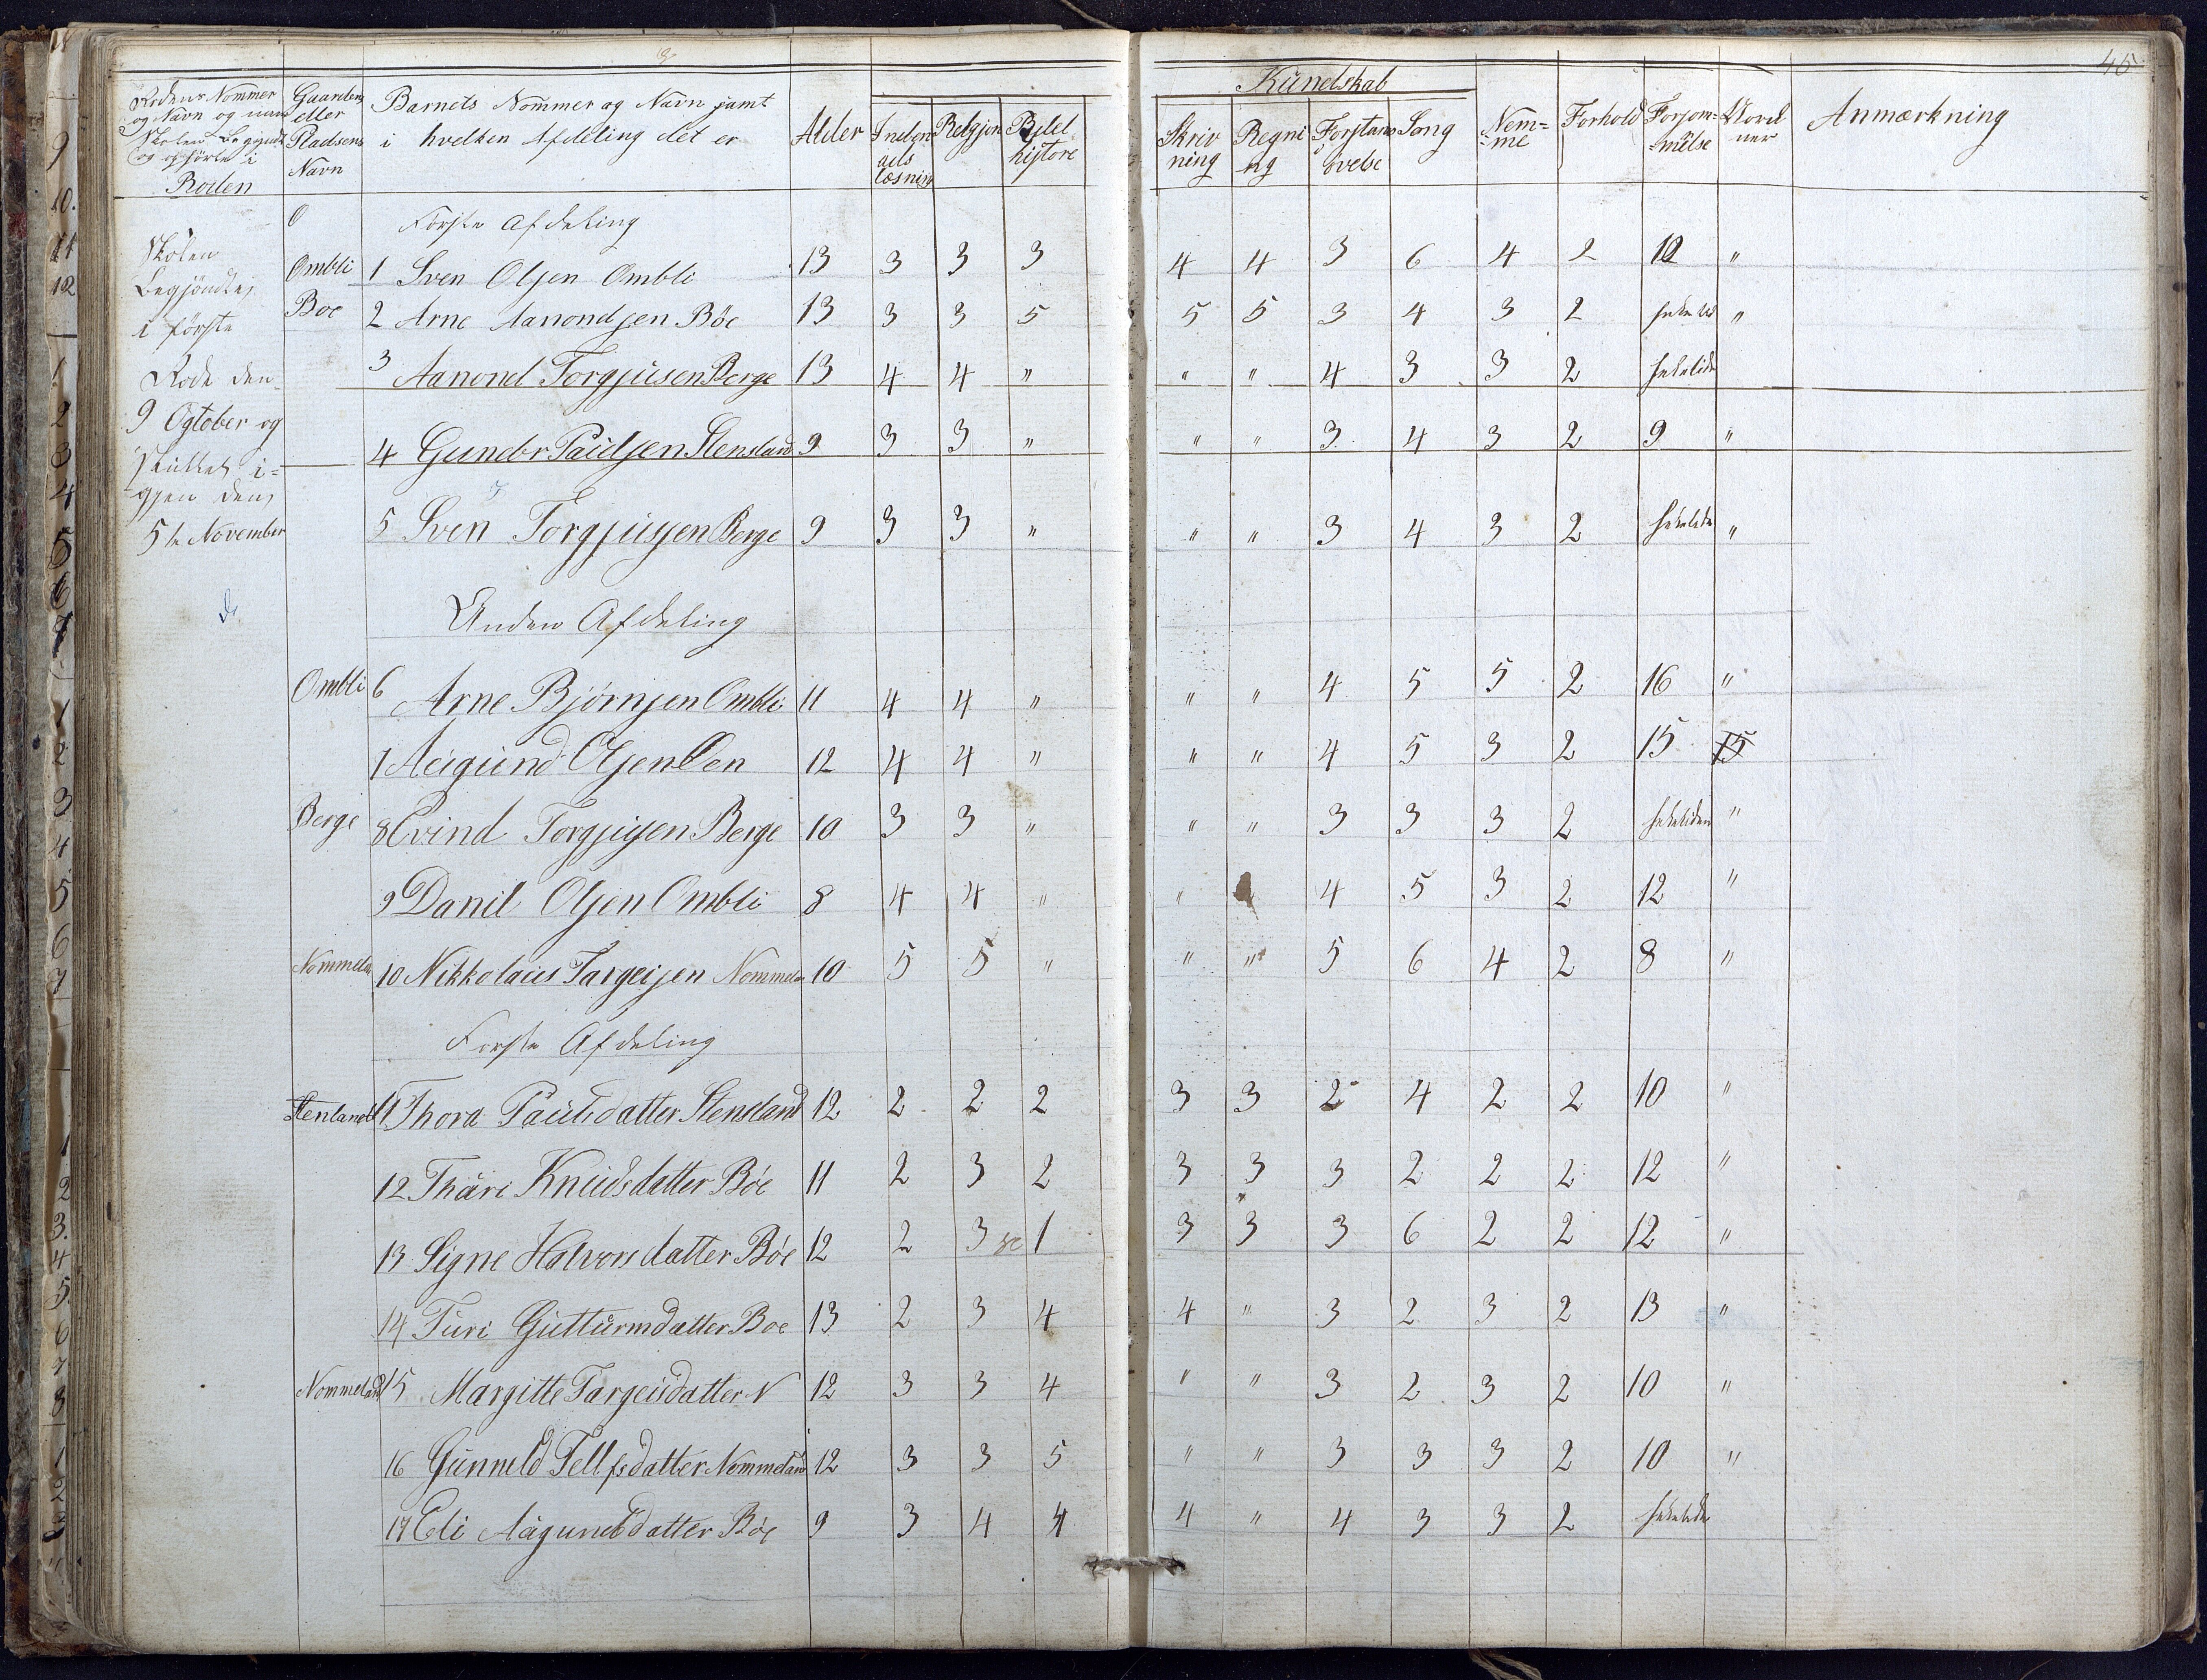 45
Kundskab
Rodens Nommer og Navn og naar Skolen Begyndte og ophörte i Roden | Gaardens eller Pladsens Navn | Barnets Nommer og Navn samt i hvelken Afdeling det er | Alder | Indeen ads læsning | Relgjon | Bibel historie | Skriv ning | Regni ng | Forstans övelse | Sang | Nem= =me | Forhold | Forsöm= =melse | | Anmærkning
Förste Afdeling
Skolen
Begjöndtes
i förste
Rode den
9 Ogtober og
i=
gjen den
5te November
Ombli 1 Sven Olsen Ombli 13 3 3 3 4 4 3 6 4 2 12 "
Boe 2 Arne Aanondsen Böe 13 3 3 5 5 5 3 4 3 2 heletid "
3 Aanond Torgjusen Berge 13 4 4 " " " 4 3 3 2 heletid
4 Gunder Paulsen Stensland 9 3 3 " " " 3 4 3 2 9 "
5 Sven Torgjusen Berge 9 3 3 " " " 3 4 3 2 heletiden "
Anden Afdeling
Ombli 6 Arne Björnsen Ombli 11 4 4 " " " 4 5 5 2 16 "
7 Augund Olsen Oen 12 4 4 " " " 4 5 3 2 15 15
Berge 8 Evind Torgjusen Berge 10 3 3 " " " 3 3 3 2 heletiden "
9 Danil Olsen Ombli 8 4 4 " " 4 5 3 2 12 "
Nommelan 10 Nikkolaus Targeisen Nommelan 10 5 5 " " " 5 6 4 2 8 "
Förste Afdeling
Stenland 11 Thora Paulsdatter Stensland 12 2 2 2 3 3 2 4 2 2 10 "
12 Thäre Knudsdatter Böe 11 2 3 2 3 3 3 2 2 2 12 "
13 Signe Halvorsdatter Böe 12 2 3 1 3 3 3 6 2 2 12 "
14 Turi Gutturmdatter Boe 13 2 3 4 4 " 3 2 3 2 13 "
Nommeland 15 Margitte Targeisdatter N 12 3 3 4 " " 3 2 3 2 10 "
16 Gunneld Tellefsdatter Nommeland 12 3 3 5 " " 3 3 3 2 10 "
17 Eli Aagundsdatter Böe 9 3 4 4 4 " 4 3 3 2 heletiden